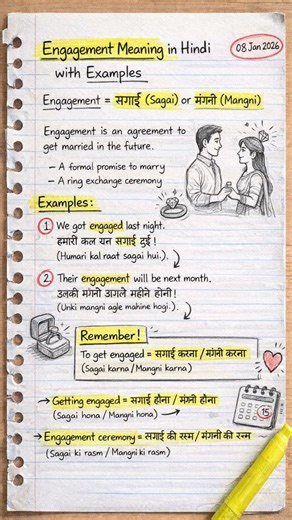 Engagement Meaning in Hindi
with Examples
08 Jan 2026
Engagement = सगाई (Sagai) or मंगनी (Mangni)
Engagement is an agreement to
get married in the future.
– A formal promise to marry
– A ring exchange ceremony
Examples:
1 We got engaged last night.
हमारी कल यन सगाई दुई !
(Humari kal raat sagai hui.)
2 Their engagement will be next month.
उलकी मंगनी अगले महीने होनी !
(Unki mangni agle mahine hogi.)
Remember!
To get engaged = सगाई करना / मंगनी करना
(Sagai karna / Mangni karna)
→ Getting engaged = सगाई हौना / मंगनी हौना
(Sagai hona / Mangni hona)
15
→ Engagement ceremony = सगाई की रस्म / मंगनी की रन्म
(Sagai ki rasm / Mangni ki rasm)